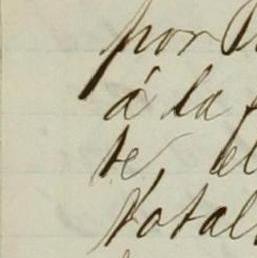 por
á la
te, el
total